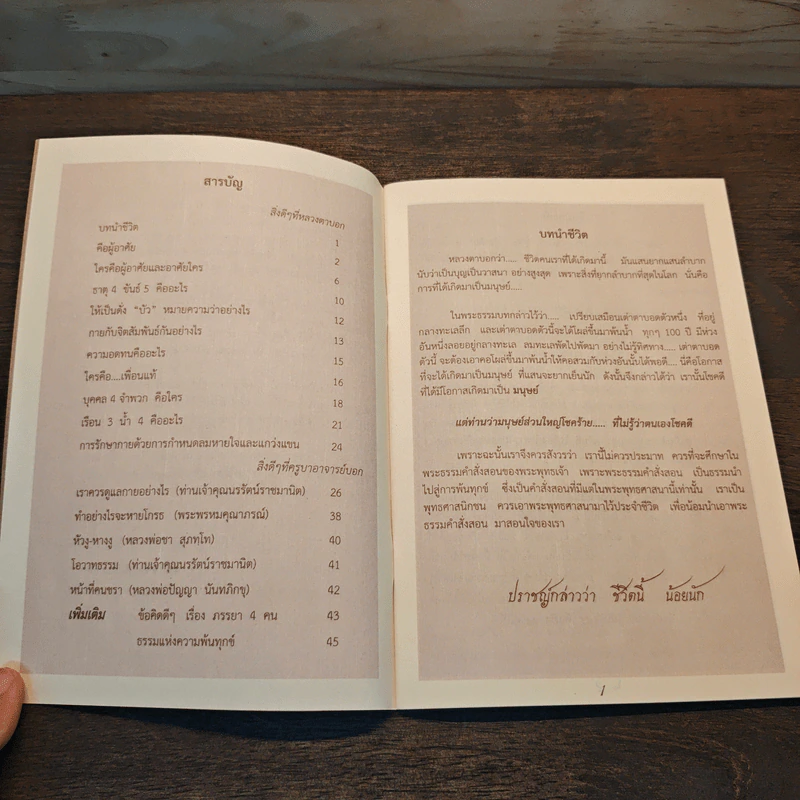 สารบัญ
สิ่งดีๆที่หลวงตาบอก
บทนำชีวิต 1
คือผู้อาศัย 2
ใครคือผู้อาศัยและอาศัยใคร 6
ธาตุ 4 ขันธ์ 5 คืออะไร 10
ให้เป็นดั่ง “บัว” หมายความว่าอย่างไร 12
กายกับจิตสัมพันธ์กันอย่างไร 13
ความอดทนคืออะไร 15
ใครคือ....เพื่อนแท้ 16
บุคคล 4 จำพวก คือใคร 18
เรือน 3 น้ำ 4 คืออะไร 21
การรักษากายด้วยการกำหนดลมหายใจและแกว่งแขน 24
สิ่งดีๆที่ครูบาอาจารย์บอก
เราควรดูแลกายอย่างไร (ท่านเจ้าคุณนรรัตน์ราชมานิต) 26
ทำอย่างไรจะหายโกรธ (พระพรหมคุณาภรณ์) 38
หัวงู-หางงู (หลวงพ่อชา สุภทฺโท) 40
โอวาทธรรม (ท่านเจ้าคุณนรรัตน์ราชมานิต) 41
หน้าที่คนชรา (หลวงพ่อปัญญา นันทภิกขุ) 42
เพิ่มเติม ข้อคิดดีๆ เรื่อง ภรรยา 4 คน 43
ธรรมแห่งความพ้นทุกข์ 45
บทนำชีวิต
หลวงตาบอกว่า..... ชีวิตคนเราที่ได้เกิดมานี้ มันแสนยากแสนลำบาก
นับว่าเป็นบุญเป็นวาสนา อย่างสูงสุด เพราะสิ่งที่ยากลำบากที่สุดในโลก นั่นคือ
การที่ได้เกิดมาเป็นมนุษย์.....
ในพระธรรมบทกล่าวไว้ว่า..... เปรียบเสมือนเต่าตาบอดตัวหนึ่ง ที่อยู่
กลางทะเลลึก และเต่าตาบอดตัวนี้จะได้โผล่ขึ้นมาพ้นน้ำ ทุกๆ 100 ปี มีห่วง
อันหนึ่งลอยอยู่กลางทะเล ลมทะเลพัดไปพัดมา อย่างไม่รู้ทิศทาง..... เต่าตาบอด
ตัวนี้ จะต้องเอาคอโผล่ขึ้นมาพ้นน้ำให้คอสวมกับห่วงอันนั้นได้พอดี.... นี่คือโอกาส
ที่จะได้เกิดมาเป็นมนุษย์ ที่แสนจะยากเย็นนัก ดังนั้นจึงกล่าวได้ว่า เรานั้นโชคดี
ที่ได้มีโอกาสเกิดมาเป็น มนุษย์
แต่ท่านว่ามนุษย์ส่วนใหญ่โชคร้าย..... ที่ไม่รู้ว่าตนเองโชคดี
เพราะฉะนั้นเราจึงควรสังวรว่า เรานี้ไม่ควรประมาท ควรที่จะศึกษาใน
พระธรรมคำสั่งสอนของพระพุทธเจ้า เพราะพระธรรมคำสั่งสอน เป็นธรรมนำ
ไปสู่การพ้นทุกข์ ซึ่งเป็นคำสั่งสอนที่มีแต่ในพระพุทธศาสนานี้เท่านั้น เราเป็น
พุทธศาสนิกชน ควรเอาพระพุทธศาสนามาไว้ประจำชีวิต เพื่อน้อมนำเอาพระ
ธรรมคำสั่งสอน มาสอนใจของเรา
ปราชญ์กล่าวว่า ชีวิตนี้ น้อยนัก
1